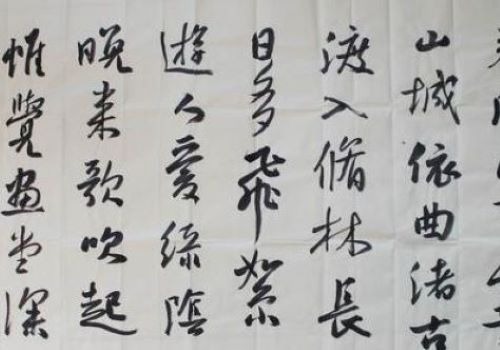 山城依曲渚古
渡入脩林長
日多飛絮
遊人愛綠陰
晚来歌吹起
惟覺畫堂深